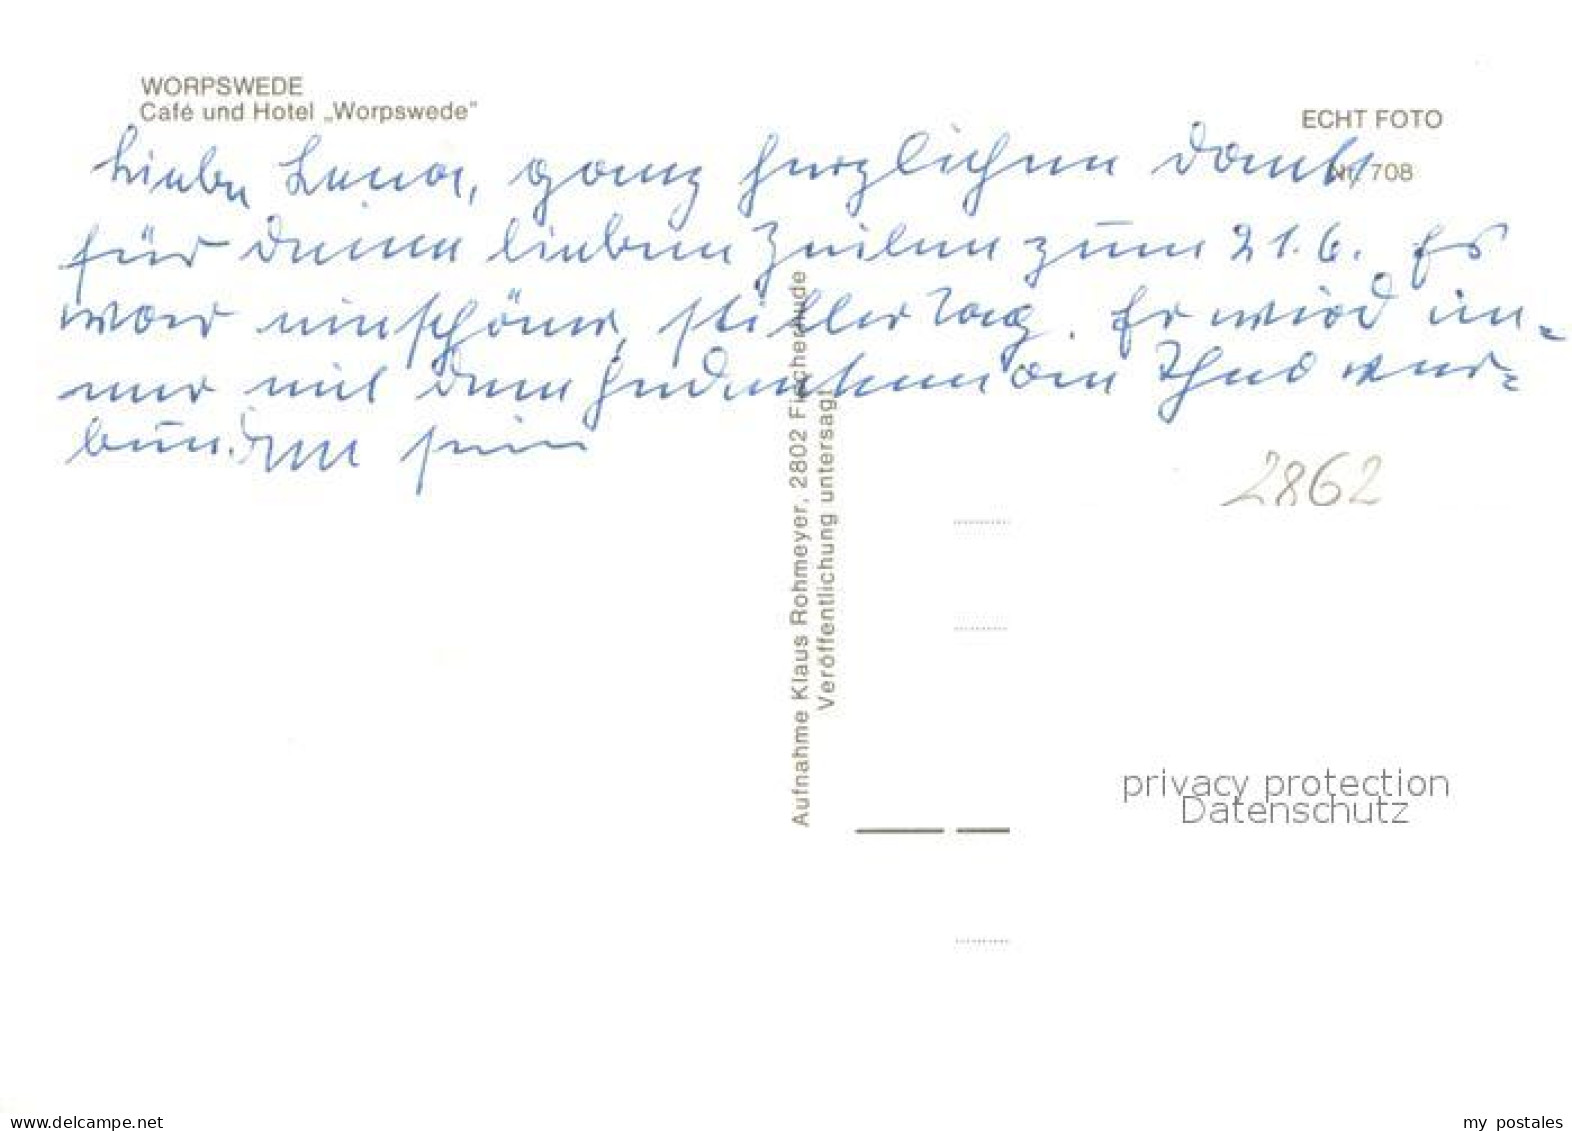 WORPSWEDE
Café und Hotel „Worpswede"
ECHT FOTO
Nr. 708
Liebe Lena, ganz herzlichen Dank
für Deine lieben Zeilen zum 21.6. Es
war ein schöner, stiller Tag. Er wird im-
mer mit dem Gedenken an ver-
bunden sein
Aufnahme Klaus Rohmeyer, 2802 Fischerhude
Veröffentlichung untersagt
2862
privacy protection
Datenschutz
https://www.delcampe.net
my_postales